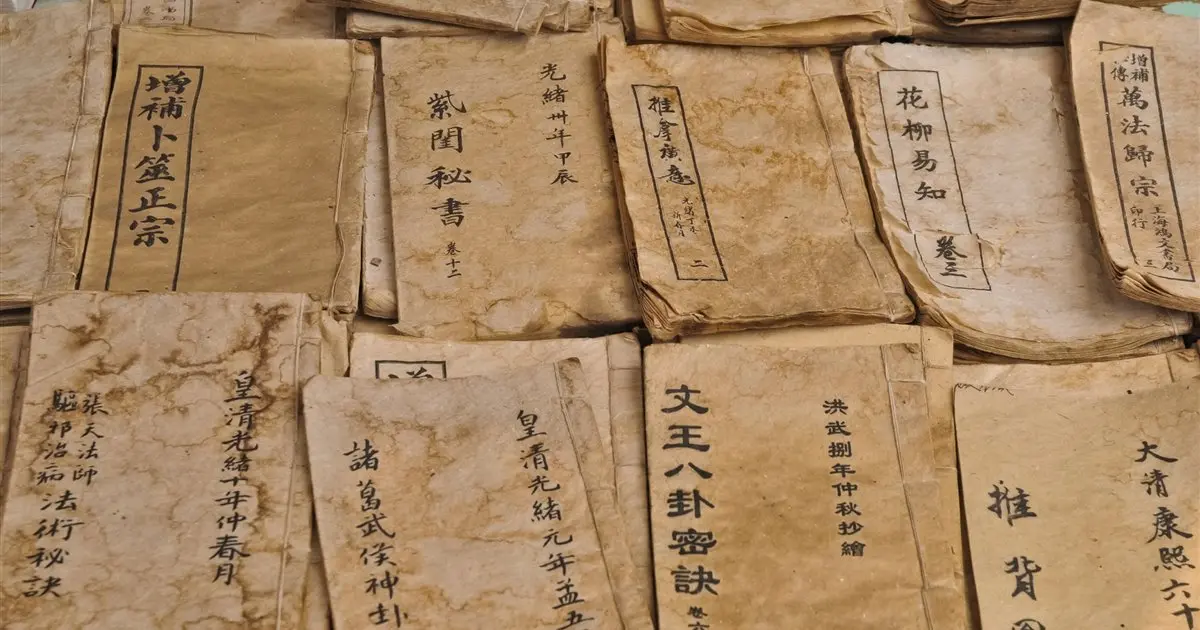 增補卜筮正宗
光緒卅年甲辰
紫閨秘書
卷十二
推拿廣意
光緒丁未
二
花柳易知
卷三
增補
傳
萬法歸宗
上海鴻文書局
印行
三
皇清光緒十年仲春月
張天法師
驅邪治病法術秘訣
皇清光緒元年孟五
諸葛武侯神卦
洪武捌年仲秋抄繪
文王八卦密訣
卷六
大清康熙六十
推背